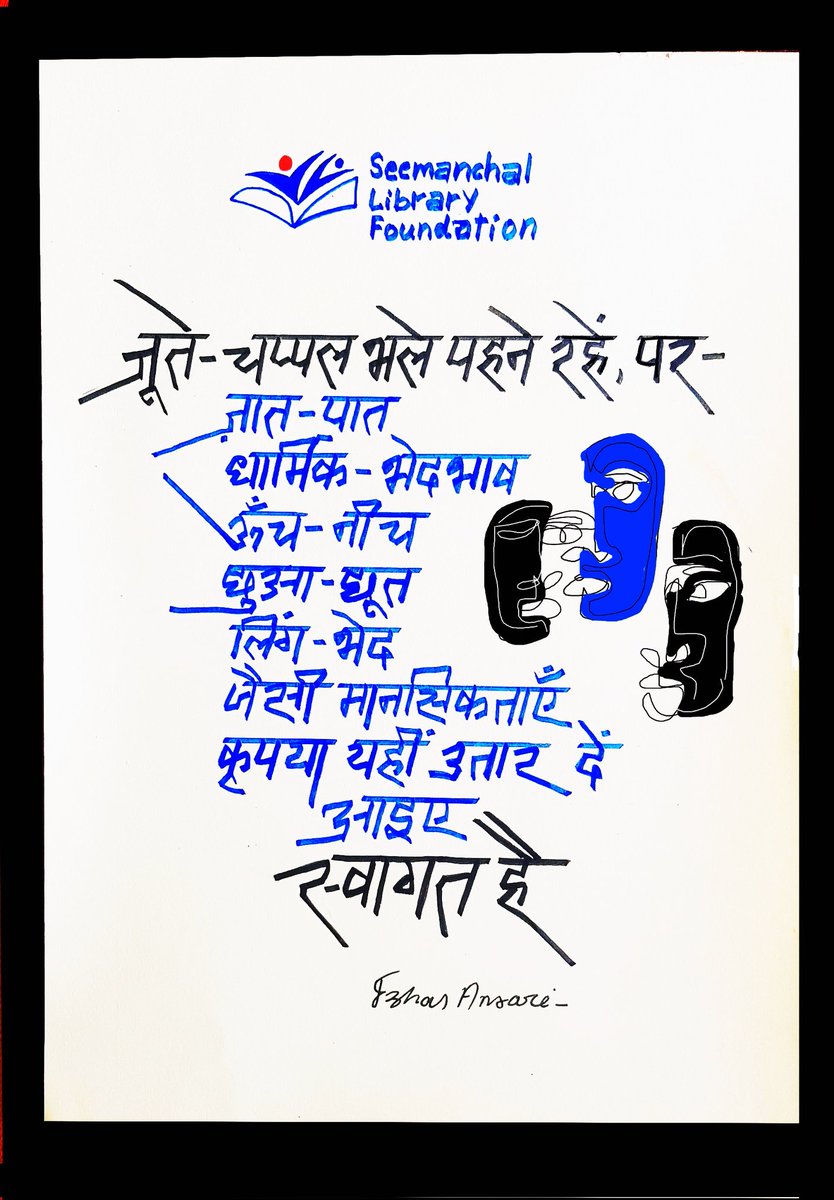 Seemanchal
Library
Foundation
जूते-चप्पल भले पहने रहें, पर-
ज़ात-पात
धार्मिक-भेदभाव
ऊँच-नीच
छुआ-छूत
लिंग-भेद
जैसी मानसिकताएँ
कृपया यहीं उतार दें
आइए
स्वागत है
Izhar Ansari-